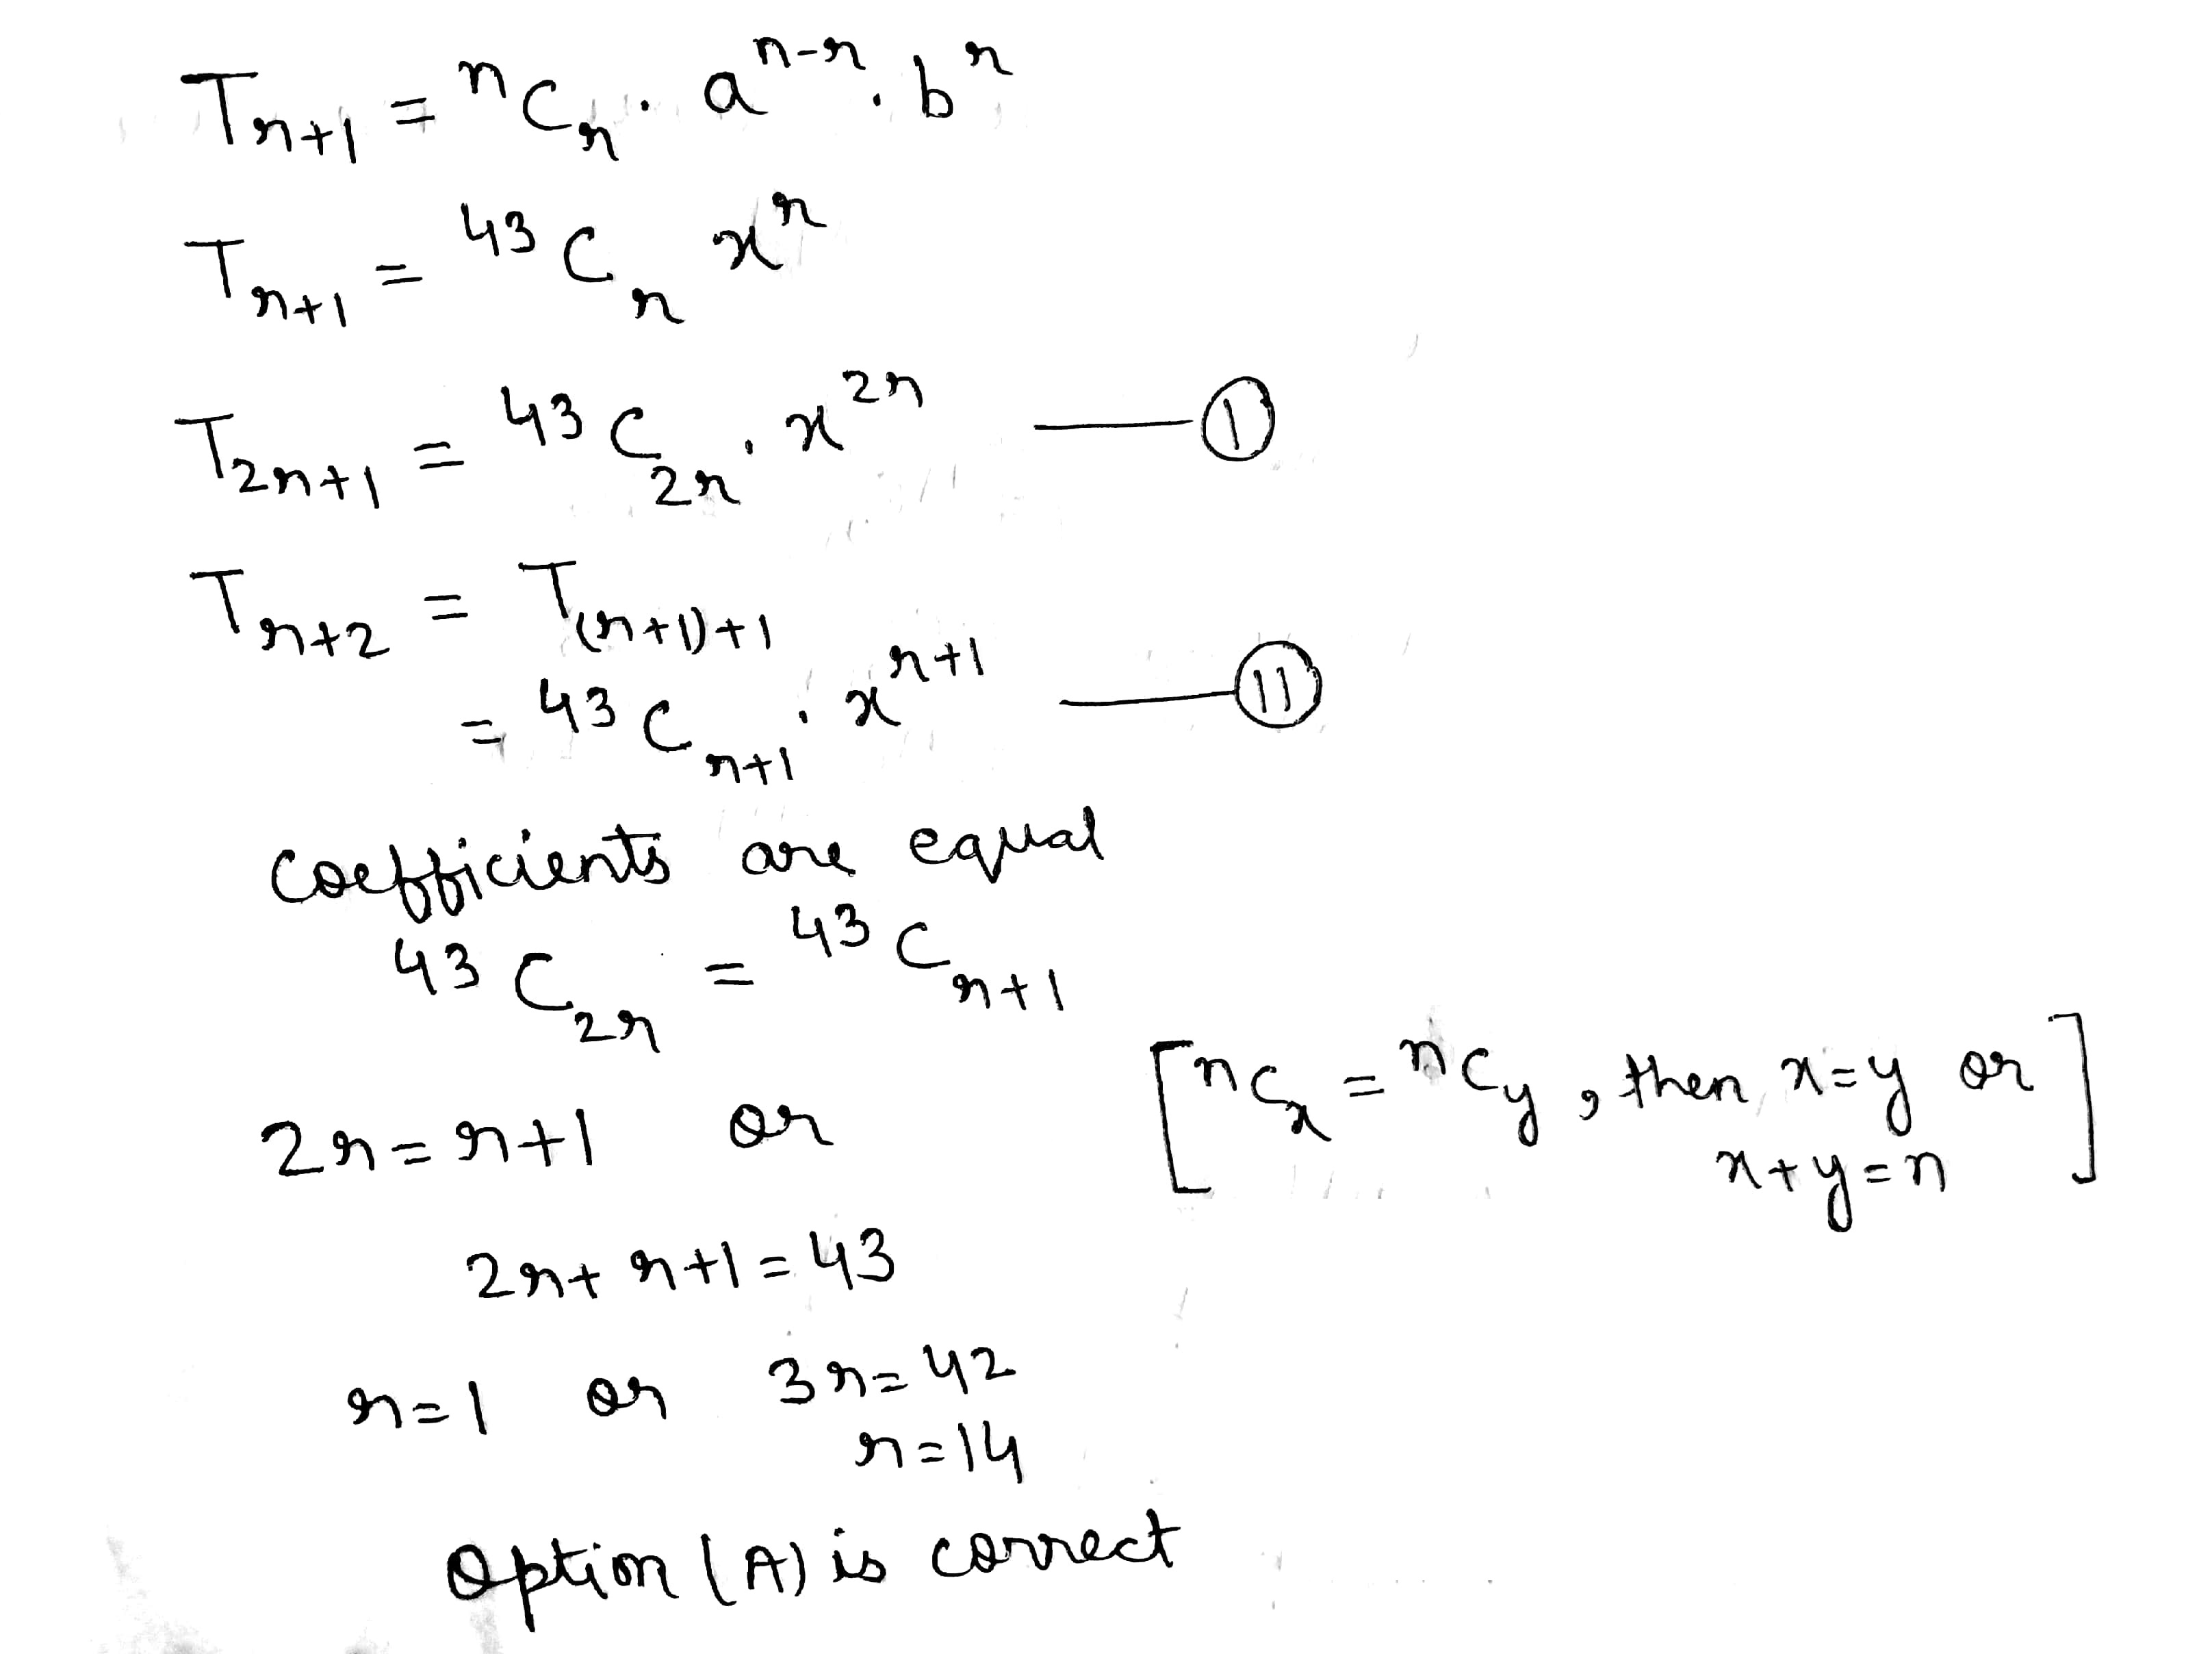 Tr+1 = ⁿCr . aⁿ⁻ʳ . bʳ
Tr+1 = ⁴³Cr xʳ
T2r+1 = ⁴³C2r . x²ʳ —— (I)
Tr+2 = T(r+1)+1
= ⁴³Cr+1 . xʳ⁺¹ —— (II)
Coefficients are equal
⁴³C2r = ⁴³Cr+1
2r = r+1 or [ⁿCx = ⁿCy, then x=y or
x+y=n]
2r + r+1 = 43
r=1 or 3r = 42
r=14
Option (A) is correct